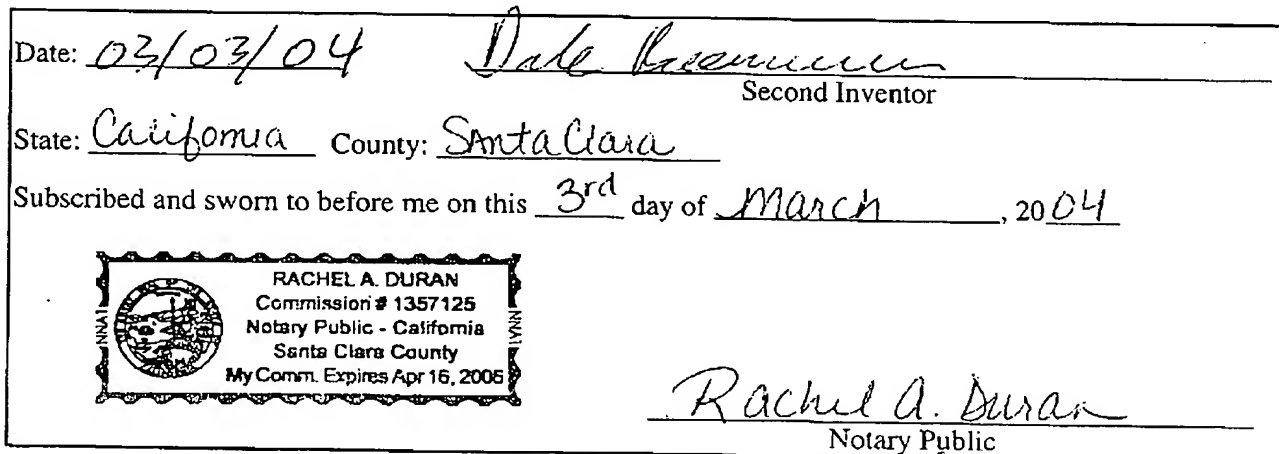 Date: 03/03/04 Dale
Second Inventor
State: California County: Santa Clara
Subscribed and sworn to before me on this 3rd day of March, 2004
RACHEL A. DURAN
Commission # 1357125
Notary Public - California
Santa Clara County
My Comm. Expires Apr 16, 2006
Rachel A. Duran
Notary Public